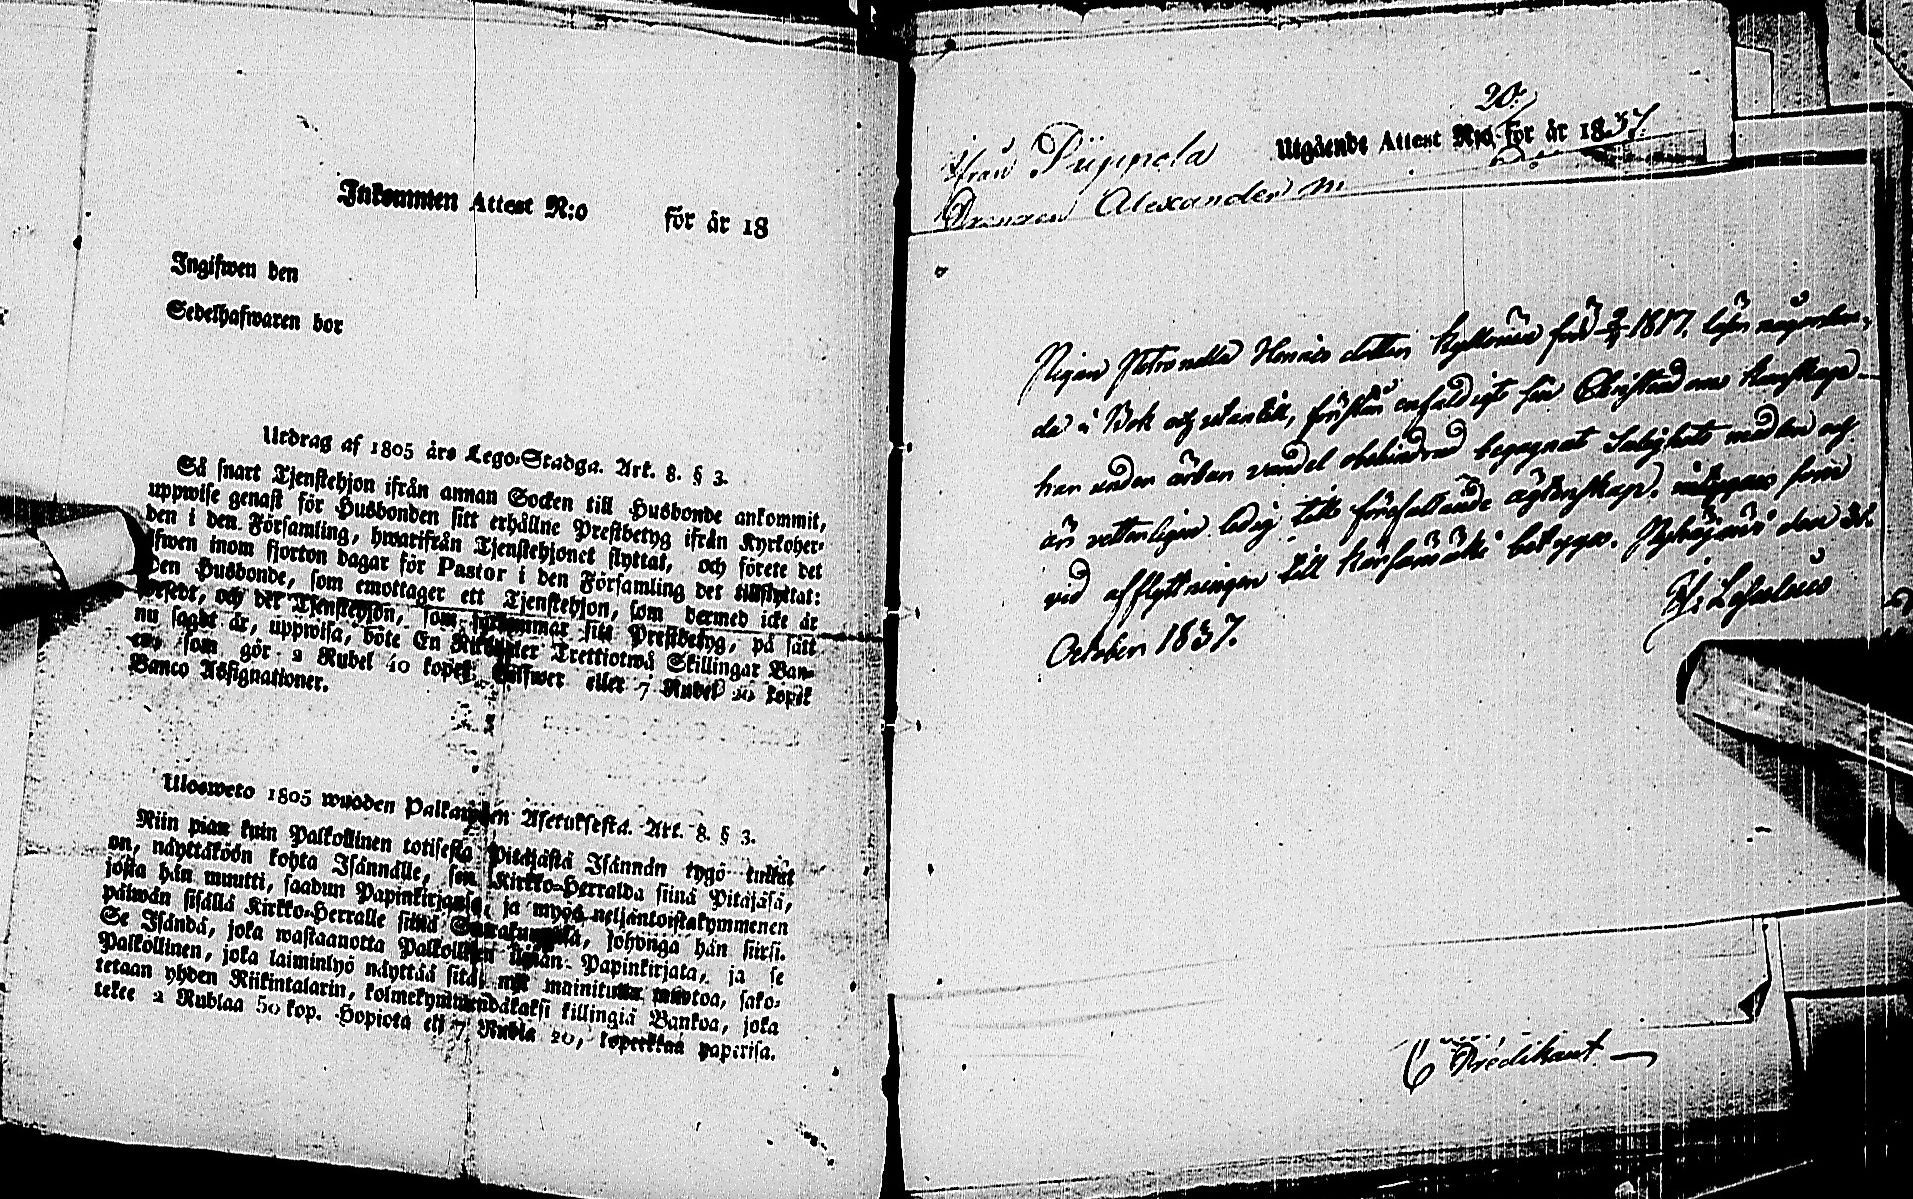 Inkommen Attest N:o för år 18
Ingifwen den
Sedelhafwaren bor
Utdrag af 1805 års Lego-Stadga. Art. 8. § 3.
Så snart Tjenstehjon ifrån annan Socken till Husbonde ankommit,
uppwise genast för Husbonden sitt erhållne Prestbetyg ifrån Kyrkoher-
den i den Församling, hwarifrån Tjenstehjonet flyttat, och förete det
ifwen inom fjorton dagar för Pastor i den Församling det tillflyttat:
Den Husbonde, som emottager ett Tjenstehjon, som dermed icke är
försedt, och det Tjenstehjon, som försummar sitt Prestbetyg, på sätt
nu sagdt är, uppwisa, böte En Riksdaler Trettiotwå Skillingar Ban-
co som gör 2 Rubel 40 kopek Silfwer eller 7 Rubel 20 kopek
Banco Assignationer.
Ulosweto 1805 wuoden Palkawäen Asetuksesta. Art. 8. § 3.
Niin pian kuin Palkollinen toisesta Pitäjästä Isännän tygö tullut
on, näyttäköön kohta Isännälle, sen Kirkko-Herralda siinä Pitäjäsä,
josta hän muutti, saadun Papinkirjansa, ja myös neljäntoistakymmenen
päiwän sisällä Kirkko-Herralle siinä Seurakunnasa, johonga hän siirsi.
Se Isändä, joka wastaanotta Palkollisen ilman Papinkirjata, ja se
Palkollinen, joka laiminlyö näyttää sitä, nyt mainitulla muotoa, sako-
tetaan yhden Riikintalarin, kolmekymmendäkaksi killingiä Bankoa, joka
tekee 2 Rublaa 50 kop. Hopiota eli 7 Rubla 20, kopekkaa paperisa.
20
Utgående Attest N:o för år 1837.
ifrån Piippola
Alexander m
Pigan Petronella Henricsdotter Kyllönen född 2/4 1817, läser någorlun-
da i Bok och utantill, förstår enfaldigt sin Christendoms kunskap
har under ärbar vandel obehindrad begagnat Salighets medlen och
är vetterligen ledig till förefallande ägtenskap. som
vid afflyttningen till Kärsämäki betygar. Pyhäjärvi den 31.
October 1837.
Prédikant